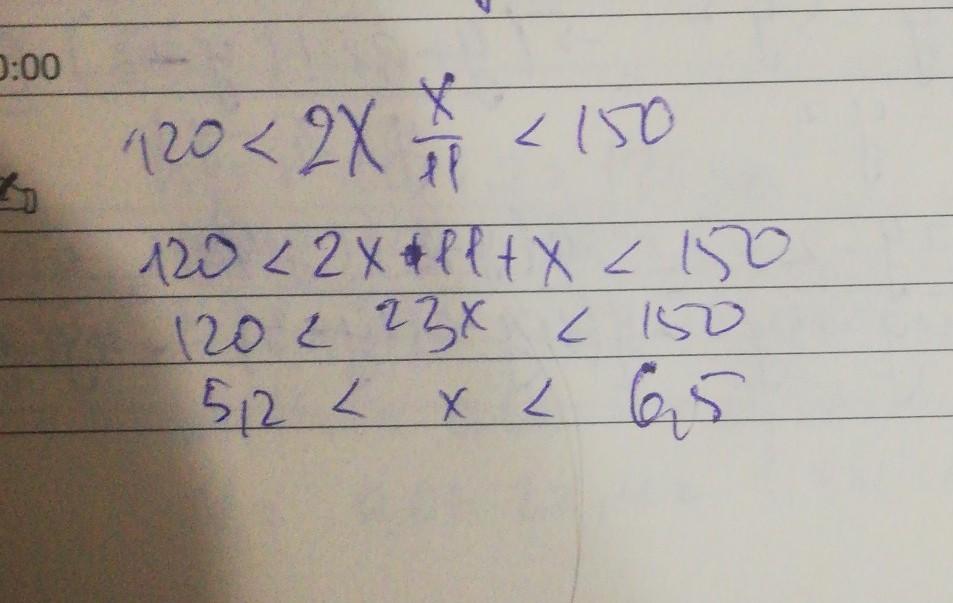 0:00
120 < 2x x/11 < 150
120 < 2x·11+x < 150
120 < 23x < 150
5,2 < x < 6,5